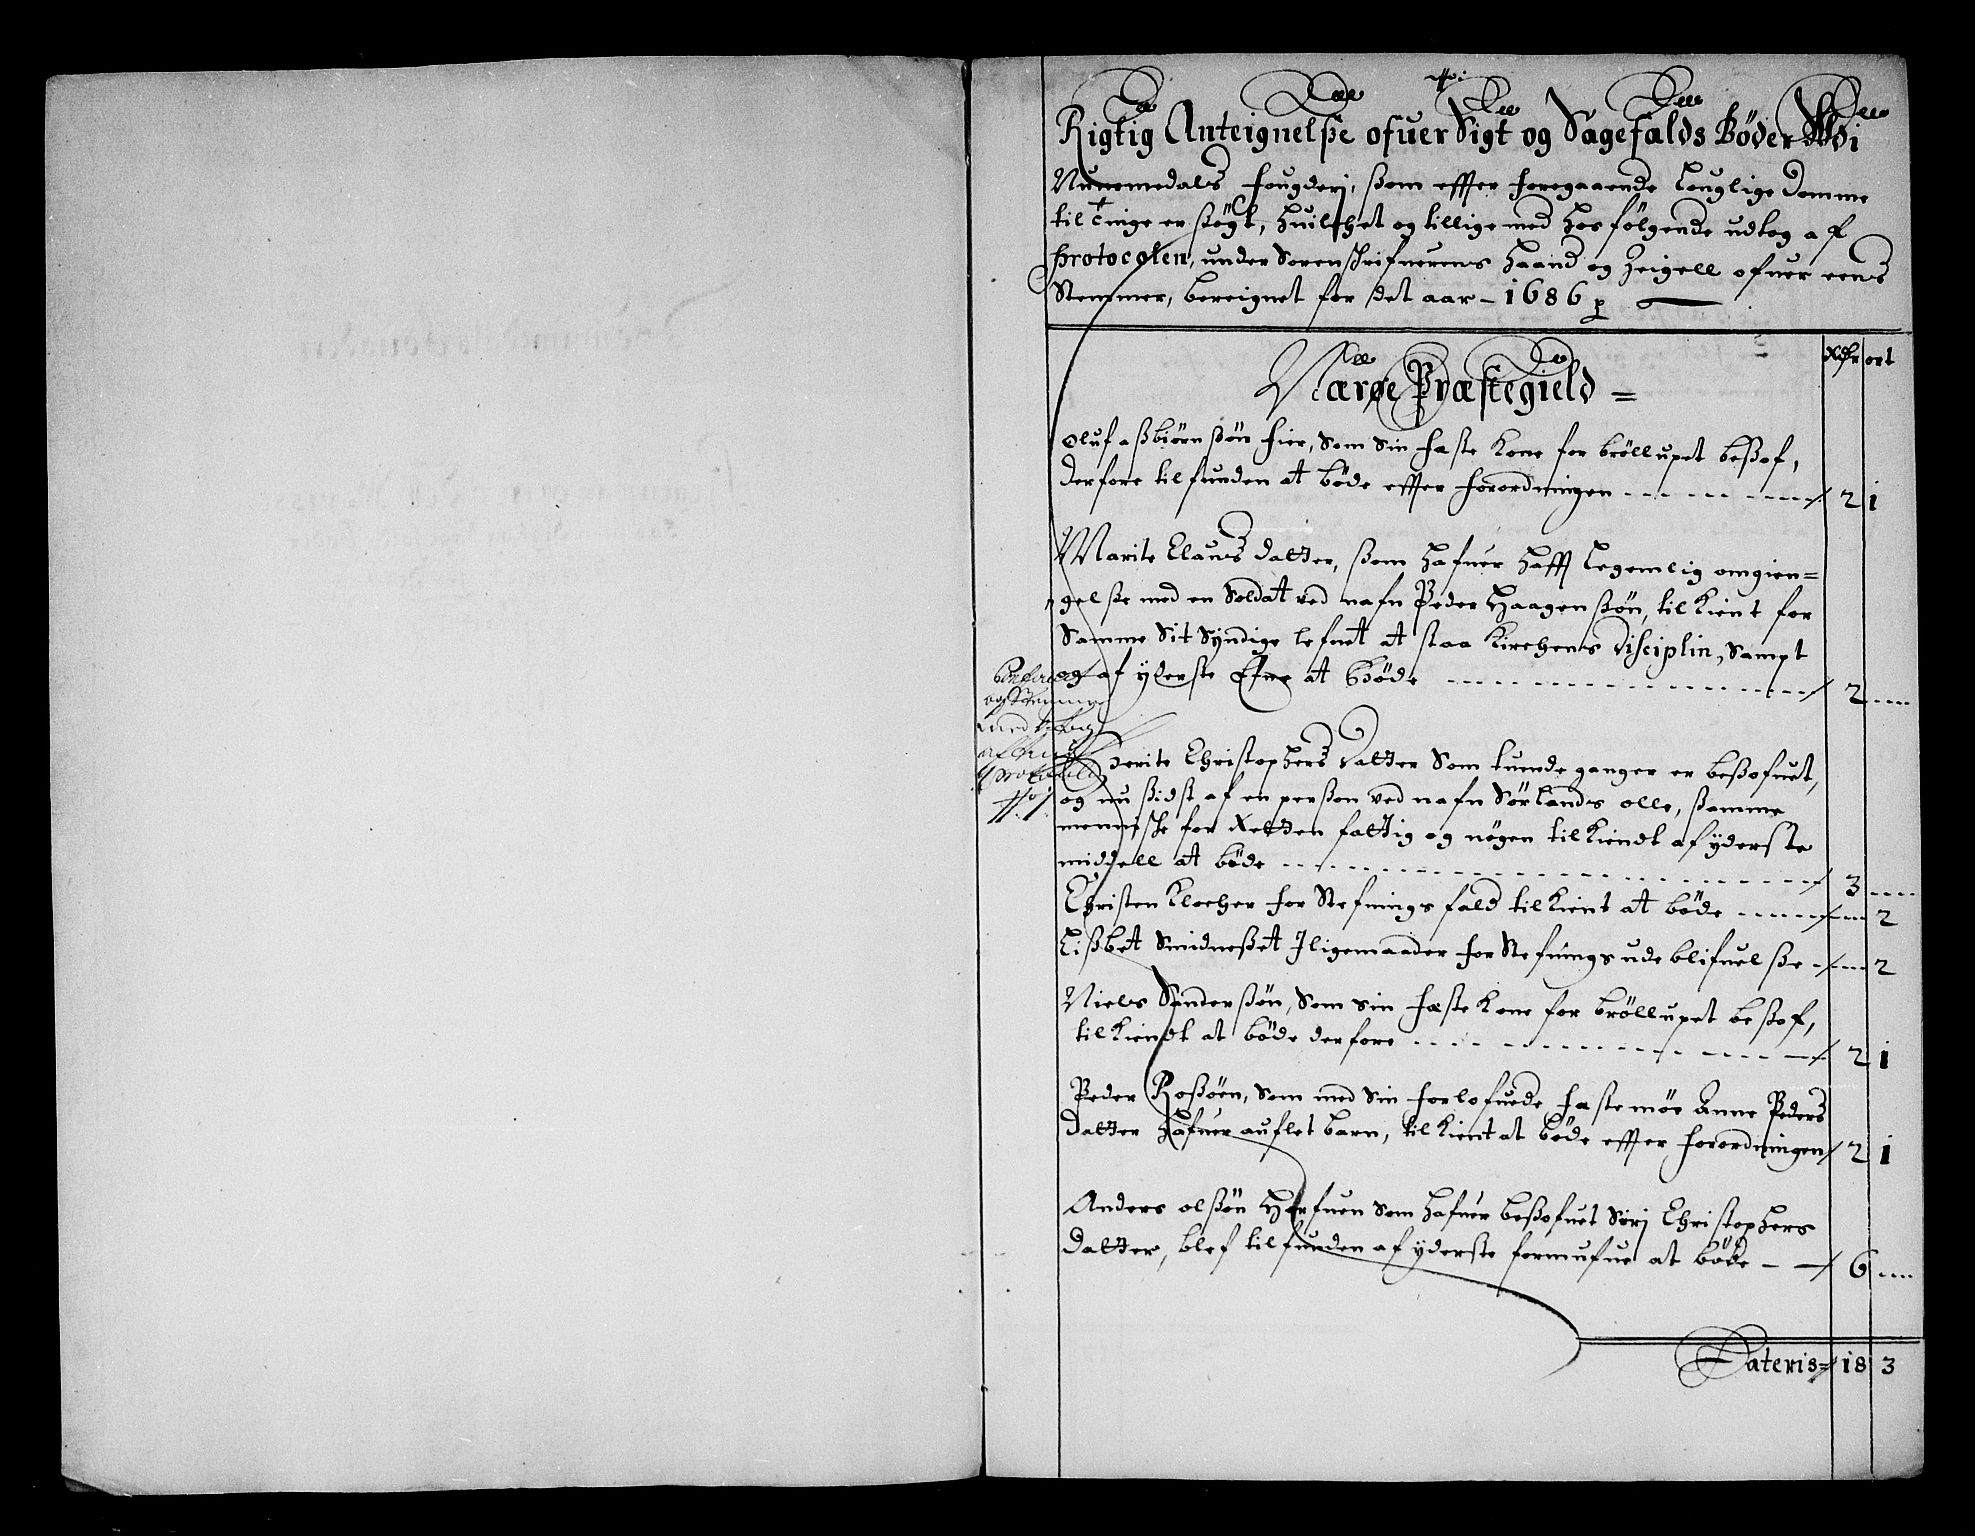 Rigtig Anteignelsse ofuer Sigt og Sagefalds Bøder Udi
Nummedals fougderj, ßom effter foregaaende Louglige domme
til tinge er ßøgt, huilchet og tillige med hosfølgende udtog af
Protocolen, under Sorenschrifuerens Haand og Zeigell ofuer eens
Stemmer, bereignet for det aar - 1686
Rdlr ort
Nærøe Præstegield =
Oluf aßbiørnßøn Fier, Som Sin fæste Kone for brøllupet beßof,
derfore tilfunden at bøde effter forordningen 2 1
Marite Clausdatter, ßom hafuer hafft Legemlig omgien=
gelße med en Soldat ved nafn Peder Haagenßøn, tilkient for
Samme Sit Syndige lefnet at staa Kirchens Disciplin, Sampt
og af yderste Efne at bøde 2
Berite Christophers datter Som tuende ganger er beßofuet,
og nu ßidst af en perßon ved nafn Sørlands olle, ßamme
mennische for Retten fattig og nøgen tilkiendt af yderste
middell at bøde 3
Christen Klocher for Stefnings fald tilkient at bøde 2
Lißbet Smidneßet Jligemaader for Stefnings udeblifuelße 2
Niels Sanderßøn, Som Sin fæste Kone for brøllupet beßof,
tilkiendt at bøde derfore 2 1
Peder Roßøen, Som med Sin forlofuede fæstemøe Anne Peders
datter hafuer auflet barn, tilkient at bøde effter forordningen 2 1
Anders olßøn Horfuen Som hafuer beßofuet Sirj Christophers
datter, blef tilfunden af yderste formufue at bøde 6
Lateris 18 3
Confererit
og Stemmer
med
af
protocolen
No 1